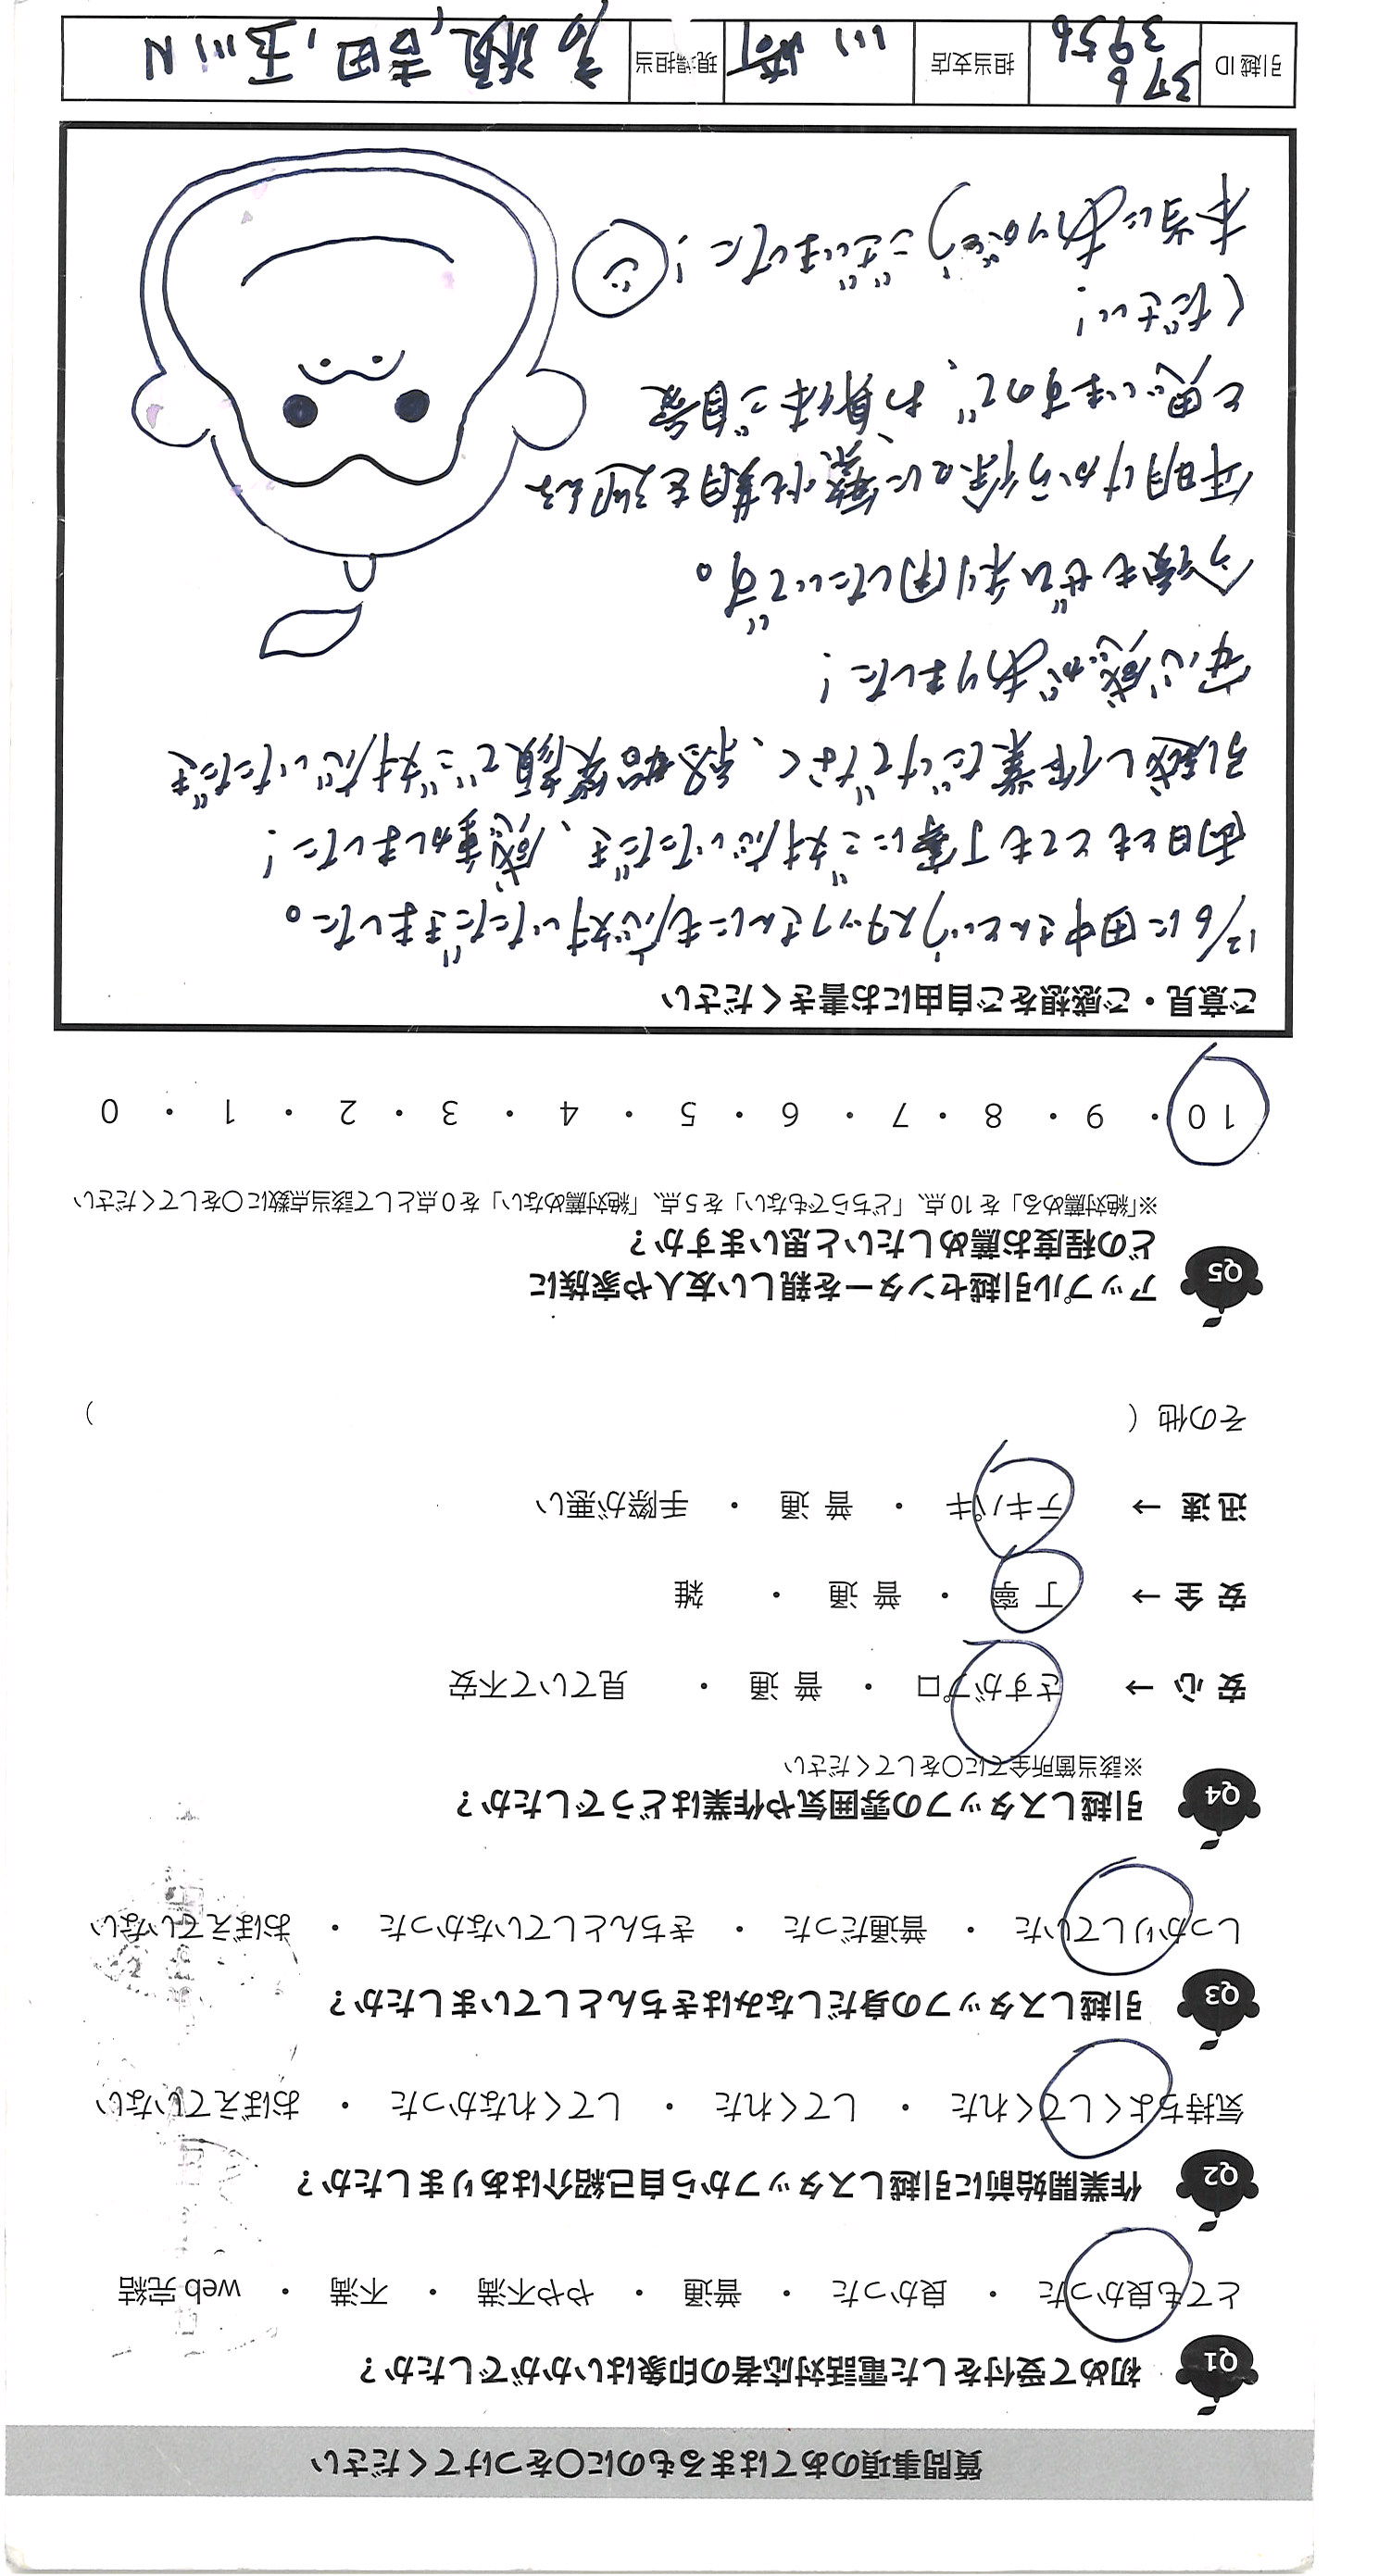 質問事項のあてはまるものに○をつけてください
Q1 初めて受付をした電話対応者の印象はいかがでしたか？
とても良かった ・ 良かった ・ 普通 ・ やや不満 ・ 不満 ・ web完結
Q2 作業開始前に引越しスタッフから自己紹介はありましたか？
気持ちよくしてくれた ・ してくれた ・ してくれなかった ・ おぼえていない
Q3 引越しスタッフの身だしなみはきちんとしていましたか？
しっかりしていた ・ 普通だった ・ きちんとしていなかった ・ おぼえていない
Q4 引越しスタッフの雰囲気や作業はどうでしたか？
※該当箇所全てに○をしてください
安心 → さすがプロ ・ 普通 ・ 見ていて不安
安全 → 丁寧 ・ 普通 ・ 雑
迅速 → テキパキ ・ 普通 ・ 手際が悪い
その他 ( )
Q5 アップル引越センターを親しい友人や家族に
どの程度お薦めしたいと思いますか？
※「絶対薦める」を10点、「どちらでもない」を5点、「絶対薦めない」を0点として該当点数に○をしてください
10 ・ 9 ・ 8 ・ 7 ・ 6 ・ 5 ・ 4 ・ 3 ・ 2 ・ 1 ・ 0
ご意見・ご感想をご自由にお書きください
12/6に田中さんというスタッフさんにも応対いただきました。
両日ともとても丁寧にご対応いただき、感動しました！
引越し作業だけでなく、終始笑顔でご対応いただき
安心感がありました！
今後もぜひ利用したいです。
年明けから徐々に繁忙期を迎える
と思いますので、お身体ご自愛
ください！
本当にありがとうございました！
引越ID 376 3956 担当支店 川崎 現場担当 高瀬, 吉田, 玉川N